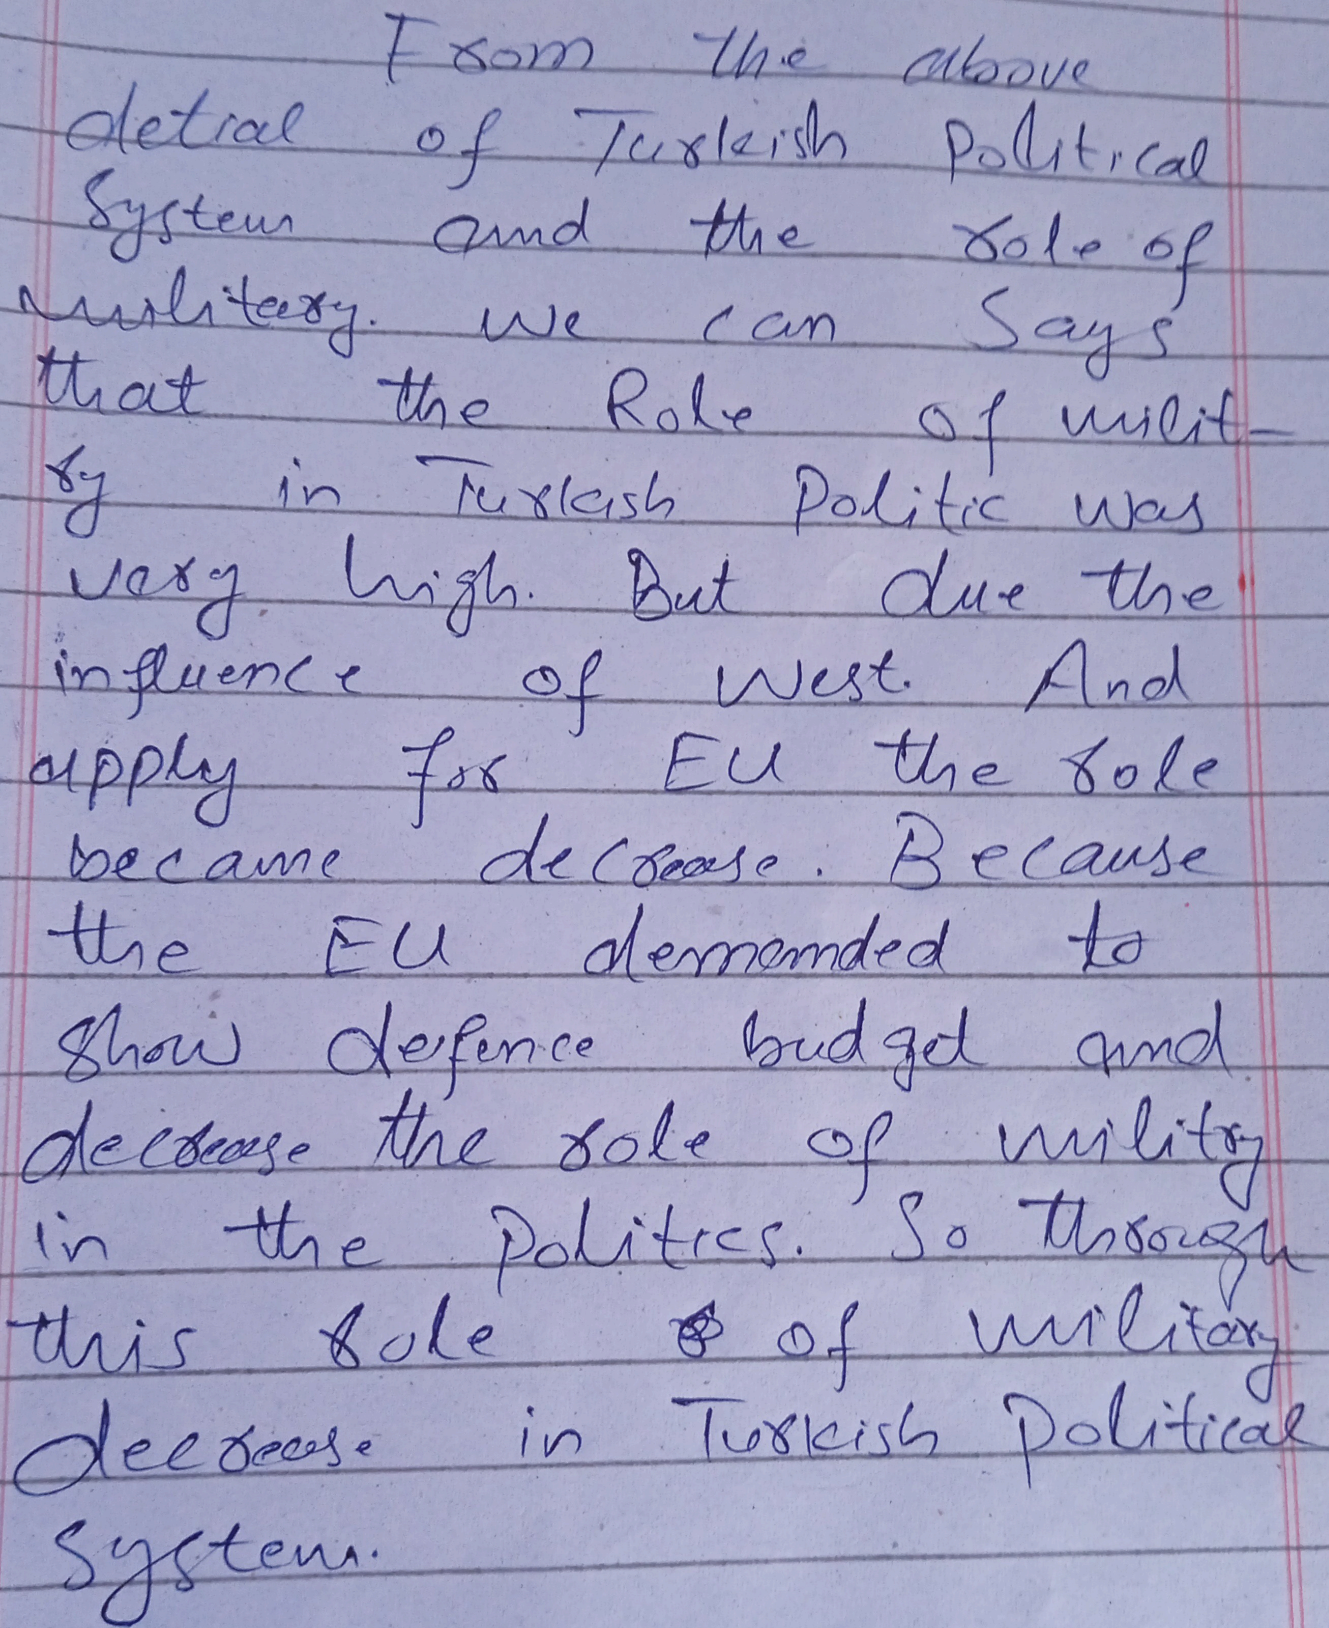 From the above
detial of Turkish Political
System and the role of
militery. We can Says
that the Role of milit-
ry in Turkish Politic was
very high. But due the
influence of West. And
apply for EU the role
became decrease. Because
the EU demanded to
Show defence budget and
decrease the role of militry
in the Politics. So through
this role of military
decrease in Turkish Political
System.